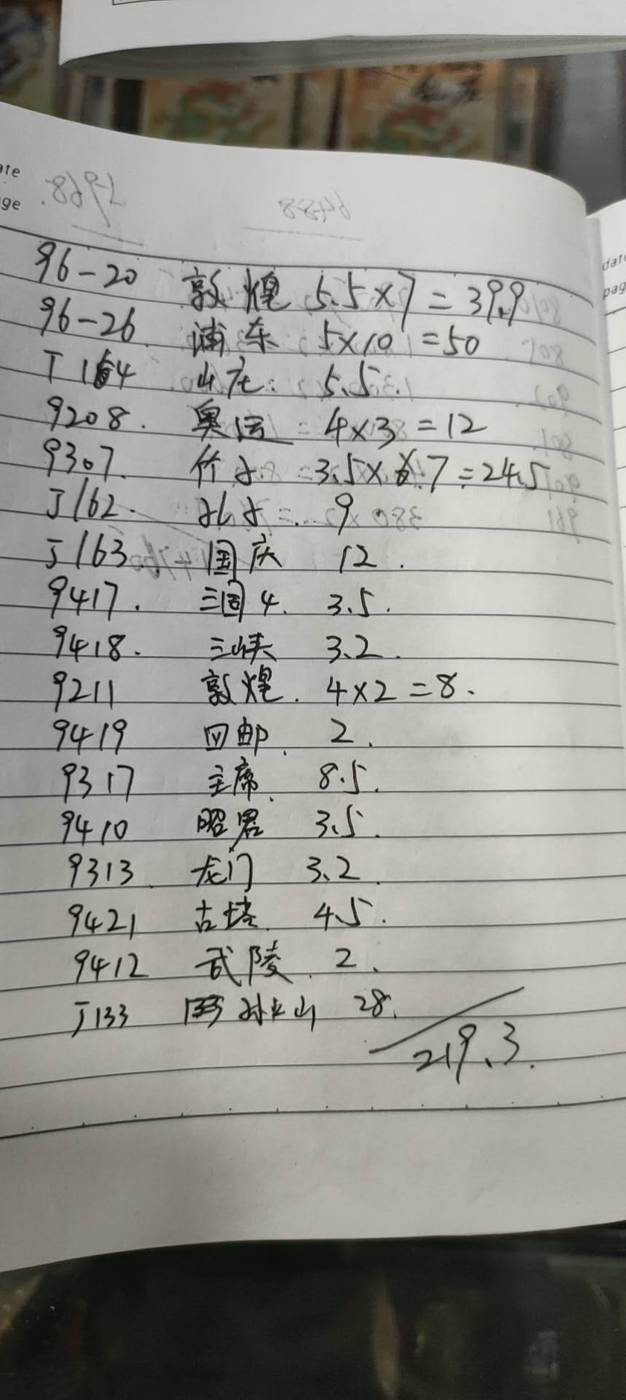 date
page
96-20 敦煌 5.5×7=39.9
96-26. 浦东 5×10=50
T164 山庄: 5.5.
9208. 奥运 4×3=12
9307. 竹子 =3.5×7=24.5
J162. 孔子 9
J163 国庆 12.
9417. 三国4. 3.5.
9418. 三峡 3.2.
9211 敦煌. 4×2=8.
9419 回邮. 2.
9317 主席. 8.5.
9410 昭君 3.5.
9313. 龙门 3.2.
9421 古塔. 4.5.
9412 武陵. 2.
J133 孙中山 28.
219.3.
date
pag